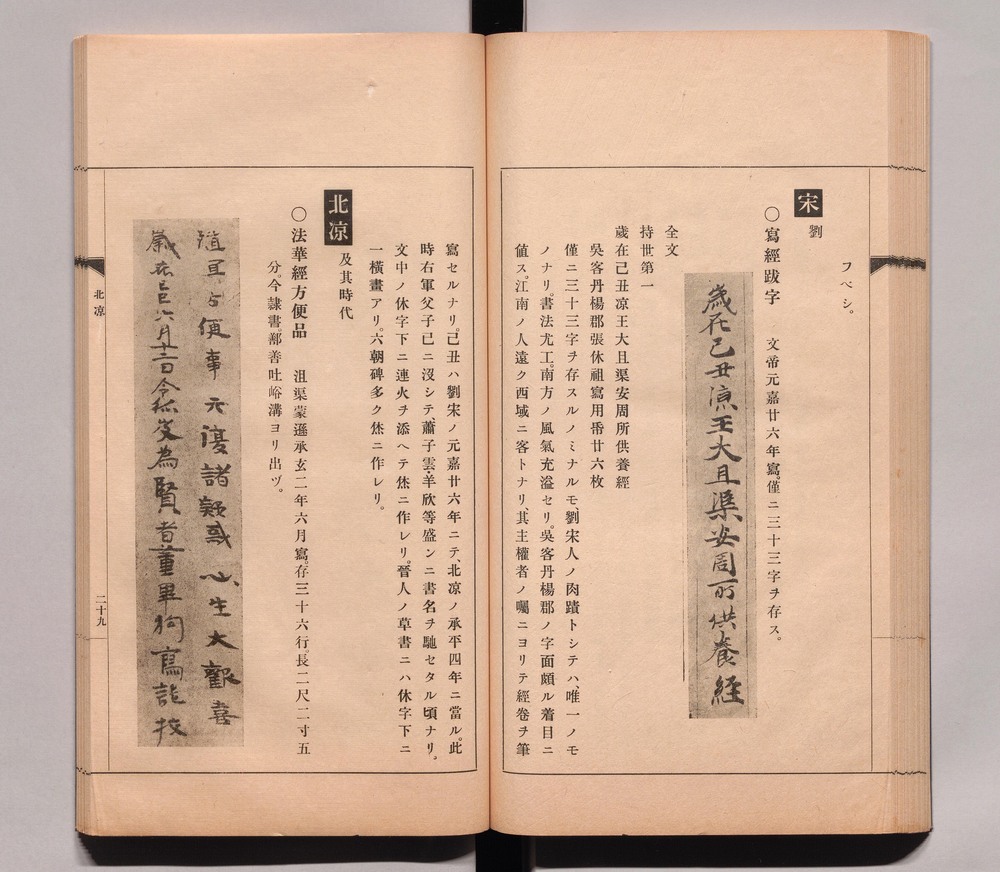 フベシ。
宋 劉
〇寫經跋字 文帝元嘉廿六年寫。僅ニ三十三字ヲ存ス。
歲在己丑涼王大且渠安周所供養経
全文
持世第一
歲在己丑凉王大且渠安周所供養經
吳客丹楊郡張休祖寫用帋廿六枚
僅ニ三十三字ヲ存スルノミナルモ、劉宋人ノ肉蹟トシテハ、唯一ノモ
ノナリ。書法尤工。南方ノ風氣充溢セリ。吳客丹楊郡ノ字面頗ル着目ニ
値ス。江南ノ人遠ク西域ニ客トナリ、其主權者ノ囑ニヨリテ經卷ヲ筆
寫セルナリ。己丑ハ劉宋ノ元嘉廿六年ニテ、北凉ノ承平四年ニ當ル。此
時右軍父子已ニ沒シテ、蕭子雲・羊欣等盛ンニ書名ヲ馳セタル頃ナリ。
文中ノ休字下ニ連火ヲ添ヘテ烋ニ作レリ。晉人ノ草書ニハ休字下ニ
一橫畫アリ。六朝碑多ク烋ニ作レリ。
北凉 及其時代
〇法華經方便品 沮渠蒙遜承玄二年六月寫。存三十六行。長二尺二寸五
分。今隷書。鄯善吐峪溝ヨリ出ヅ。
便事 元復諸疑惑 心生大歡喜
歲在己巳六月十二日令狐岌為賢者董畢狗寫訖校
北凉
二十九